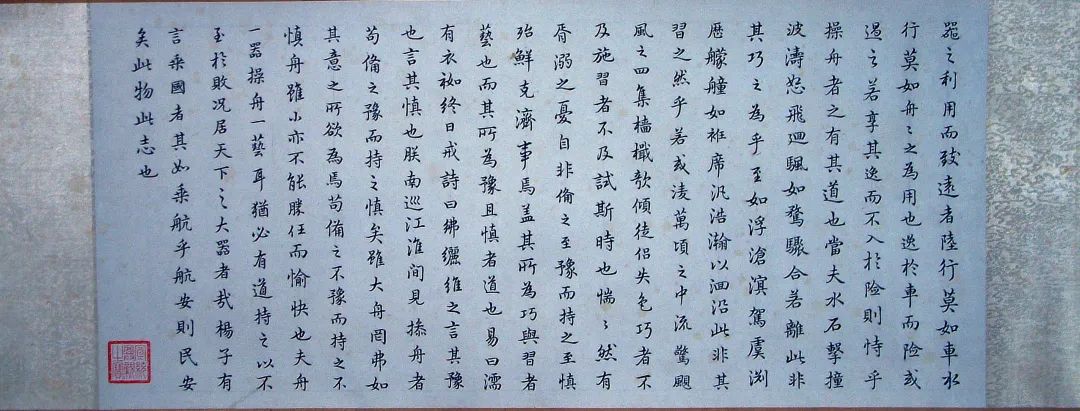 器之利用而致遠者陸行莫如車水
行莫如舟舟之為用也逸於車而險或
過之若享其逸而不入於險則恃乎
操舟者之有其道也當夫水石擊撞
波濤怒飛迴颿如騖驟合若離此非
其巧之為乎至如浮滄溟駕虞淵
歷艨艟如袵席汎浩瀚以洄沿此非其
習之然乎若或凌萬頃之中流驚颶
風之四集檣櫼欹傾徒侶失色巧者不
及施習者不及試斯時也惴惴然有
胥溺之憂自非備之至豫而持之至慎
殆鮮克濟事焉盖其所為巧與習者
藝也而其所為豫且慎者道也易曰濡
有衣袽終日戒詩曰紼纚維之言其豫
也言其慎也朕南巡江淮間見操舟者
苟備之豫而持之慎矣雖大舟罔弗如
其意之所欲為焉苟備之不豫而持之不
慎舟雖小亦不能勝任而愉快也夫舟
一器操舟一藝耳猶必有道持之以不
至於敗况居天下之大器者哉楊子有
言乘國者其如乘航乎航安則民安
矣此物此志也